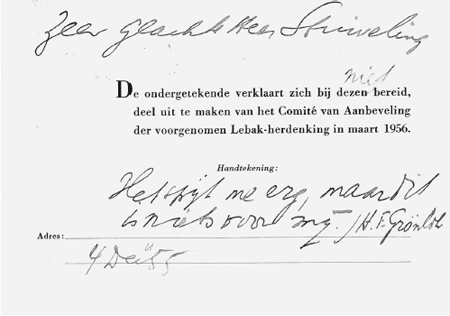 Zeer geachte Heer Stuiveling
niet
De ondergetekende verklaart zich bij dezen bereid,
deel uit te maken van het Comité van Aanbeveling
der voorgenomen Lebak-herdenking in maart 1956.
Handtekening:
Het spijt me erg, maar dit
is niets voor mij. /H.F. Grönloh
Adres:
4 Dec 55